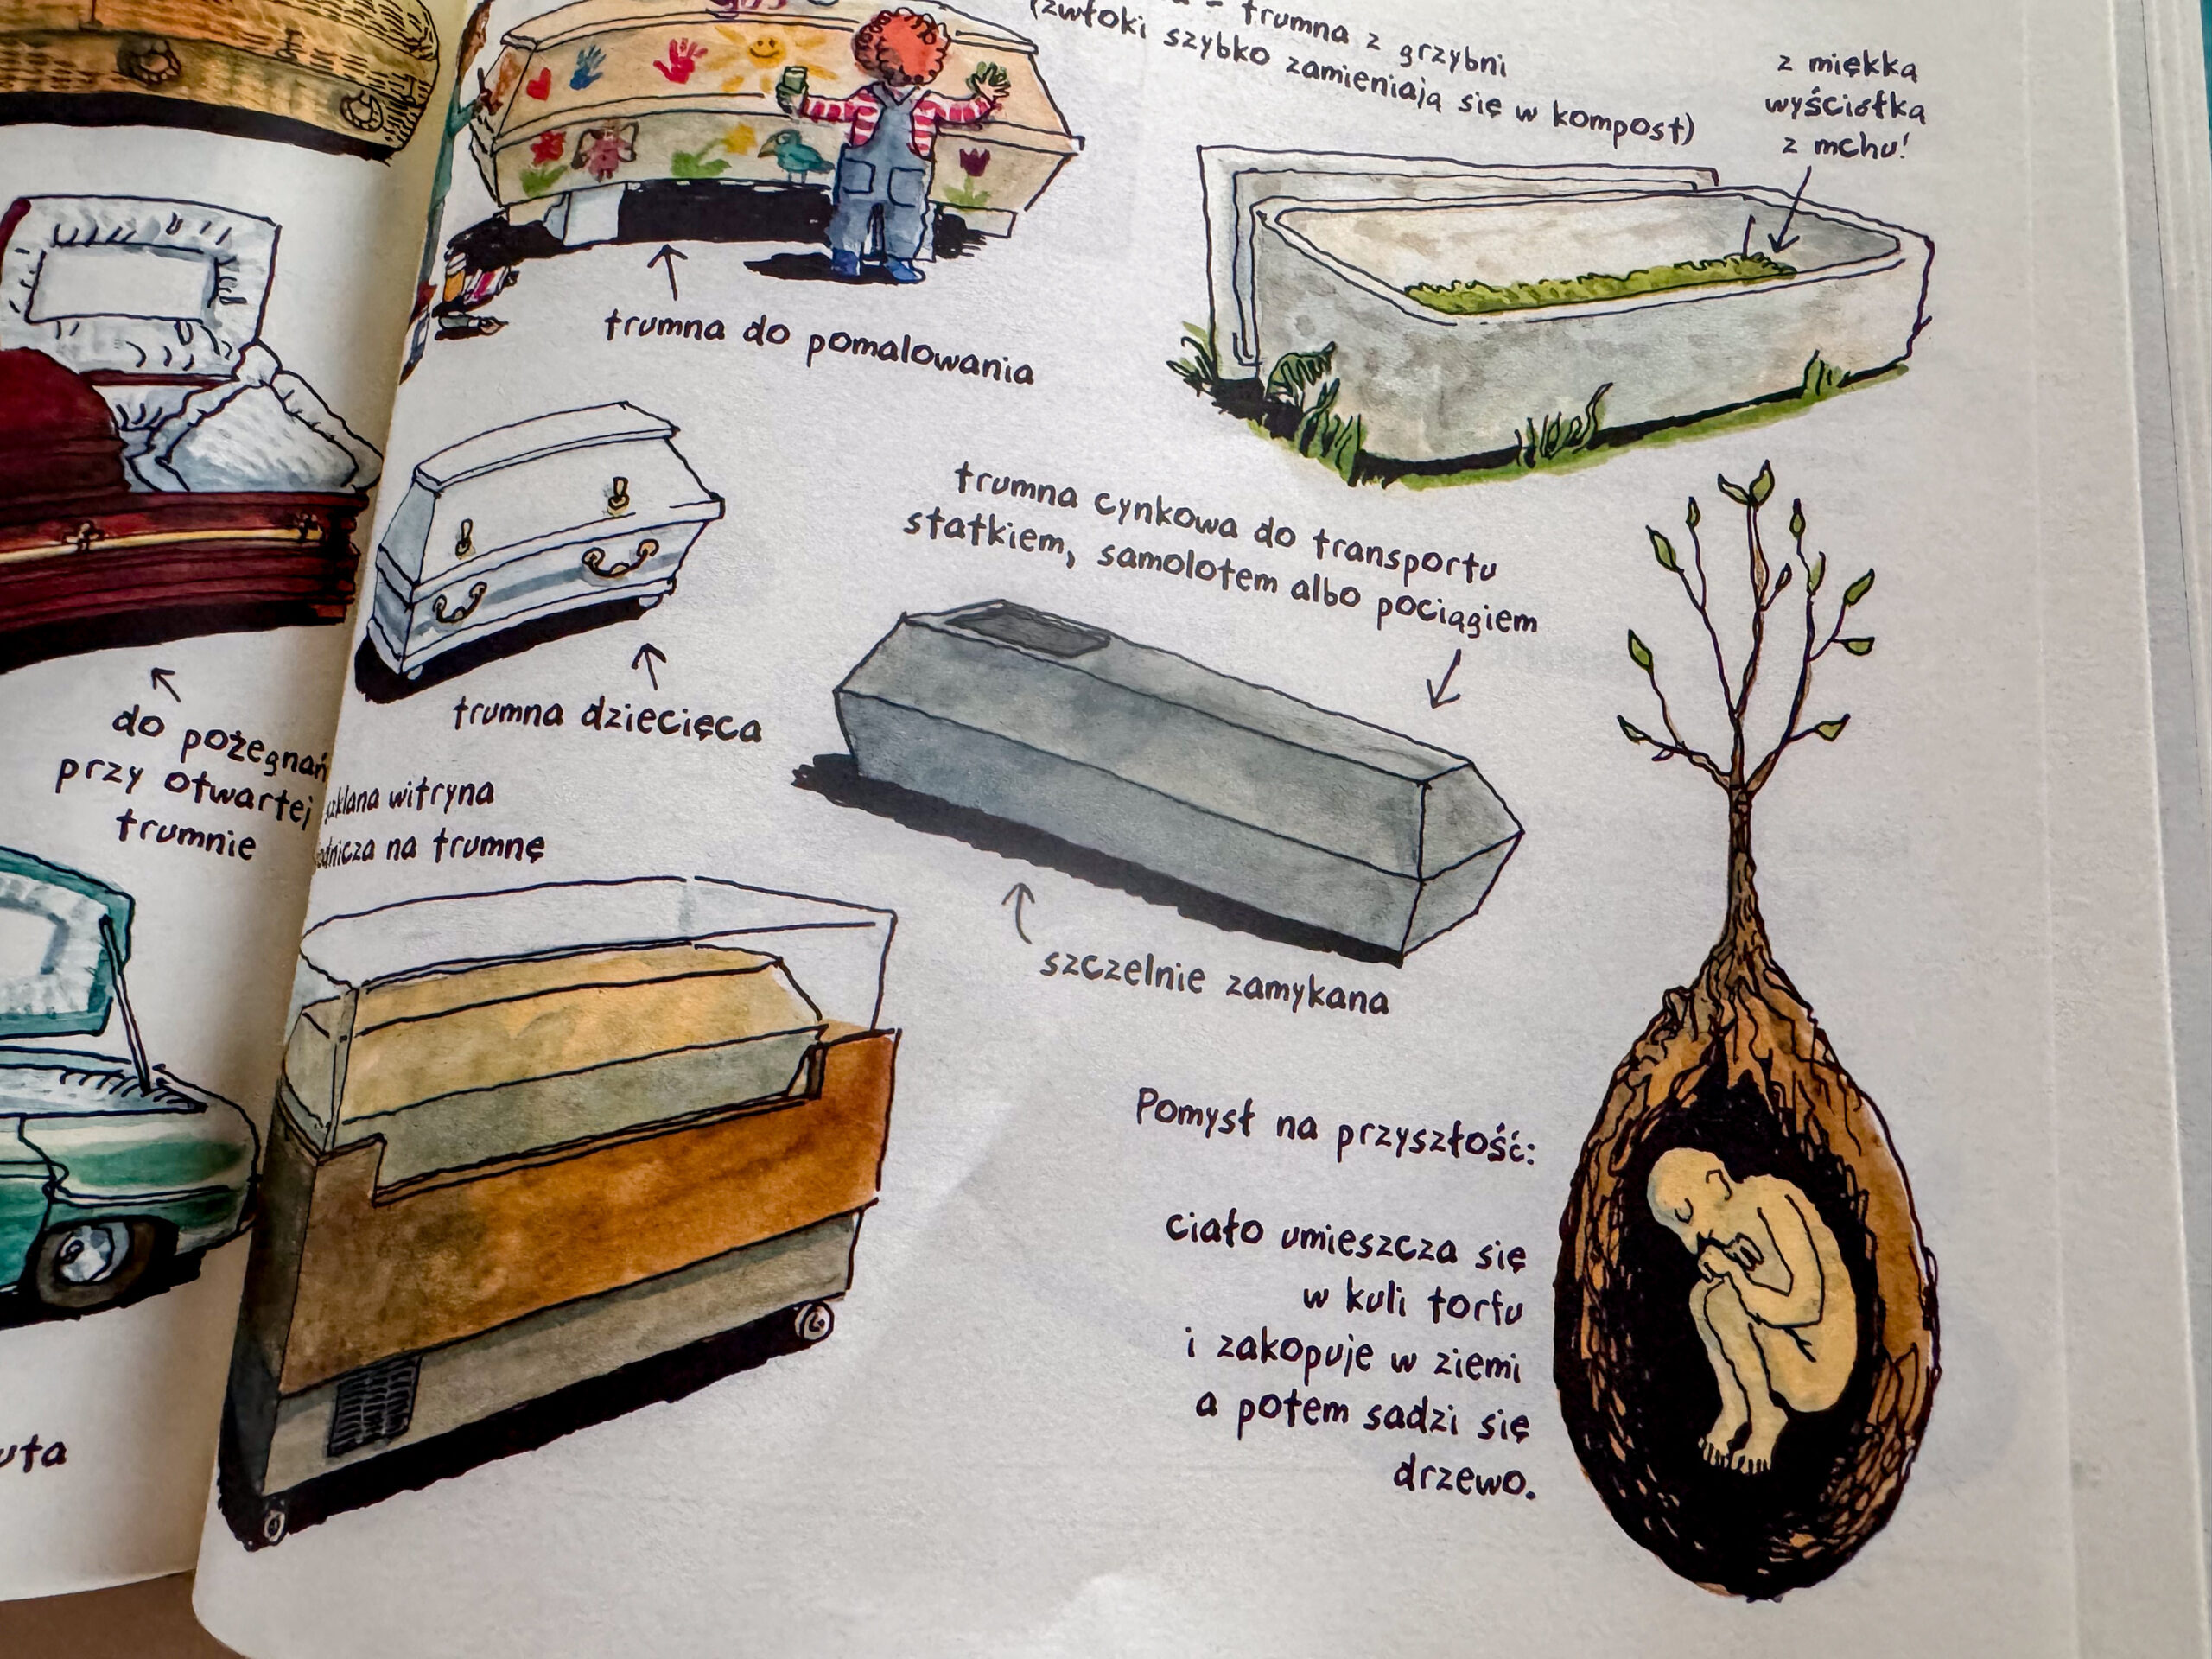 do pożegnań
przy otwartej
trumnie
- trumna z grzybni
(zwłoki szybko zamieniają się w kompost)
z miękką
wyściółką
z mchu!
trumna do pomalowania
trumna dziecięca
trumna cynkowa do transportu
statkiem, samolotem albo pociągiem
szczelnie zamykana
witryna
na trumnę
Pomysł na przyszłość:
ciało umieszcza się
w kuli torfu
i zakopuje w ziemi
a potem sadzi się
drzewo.